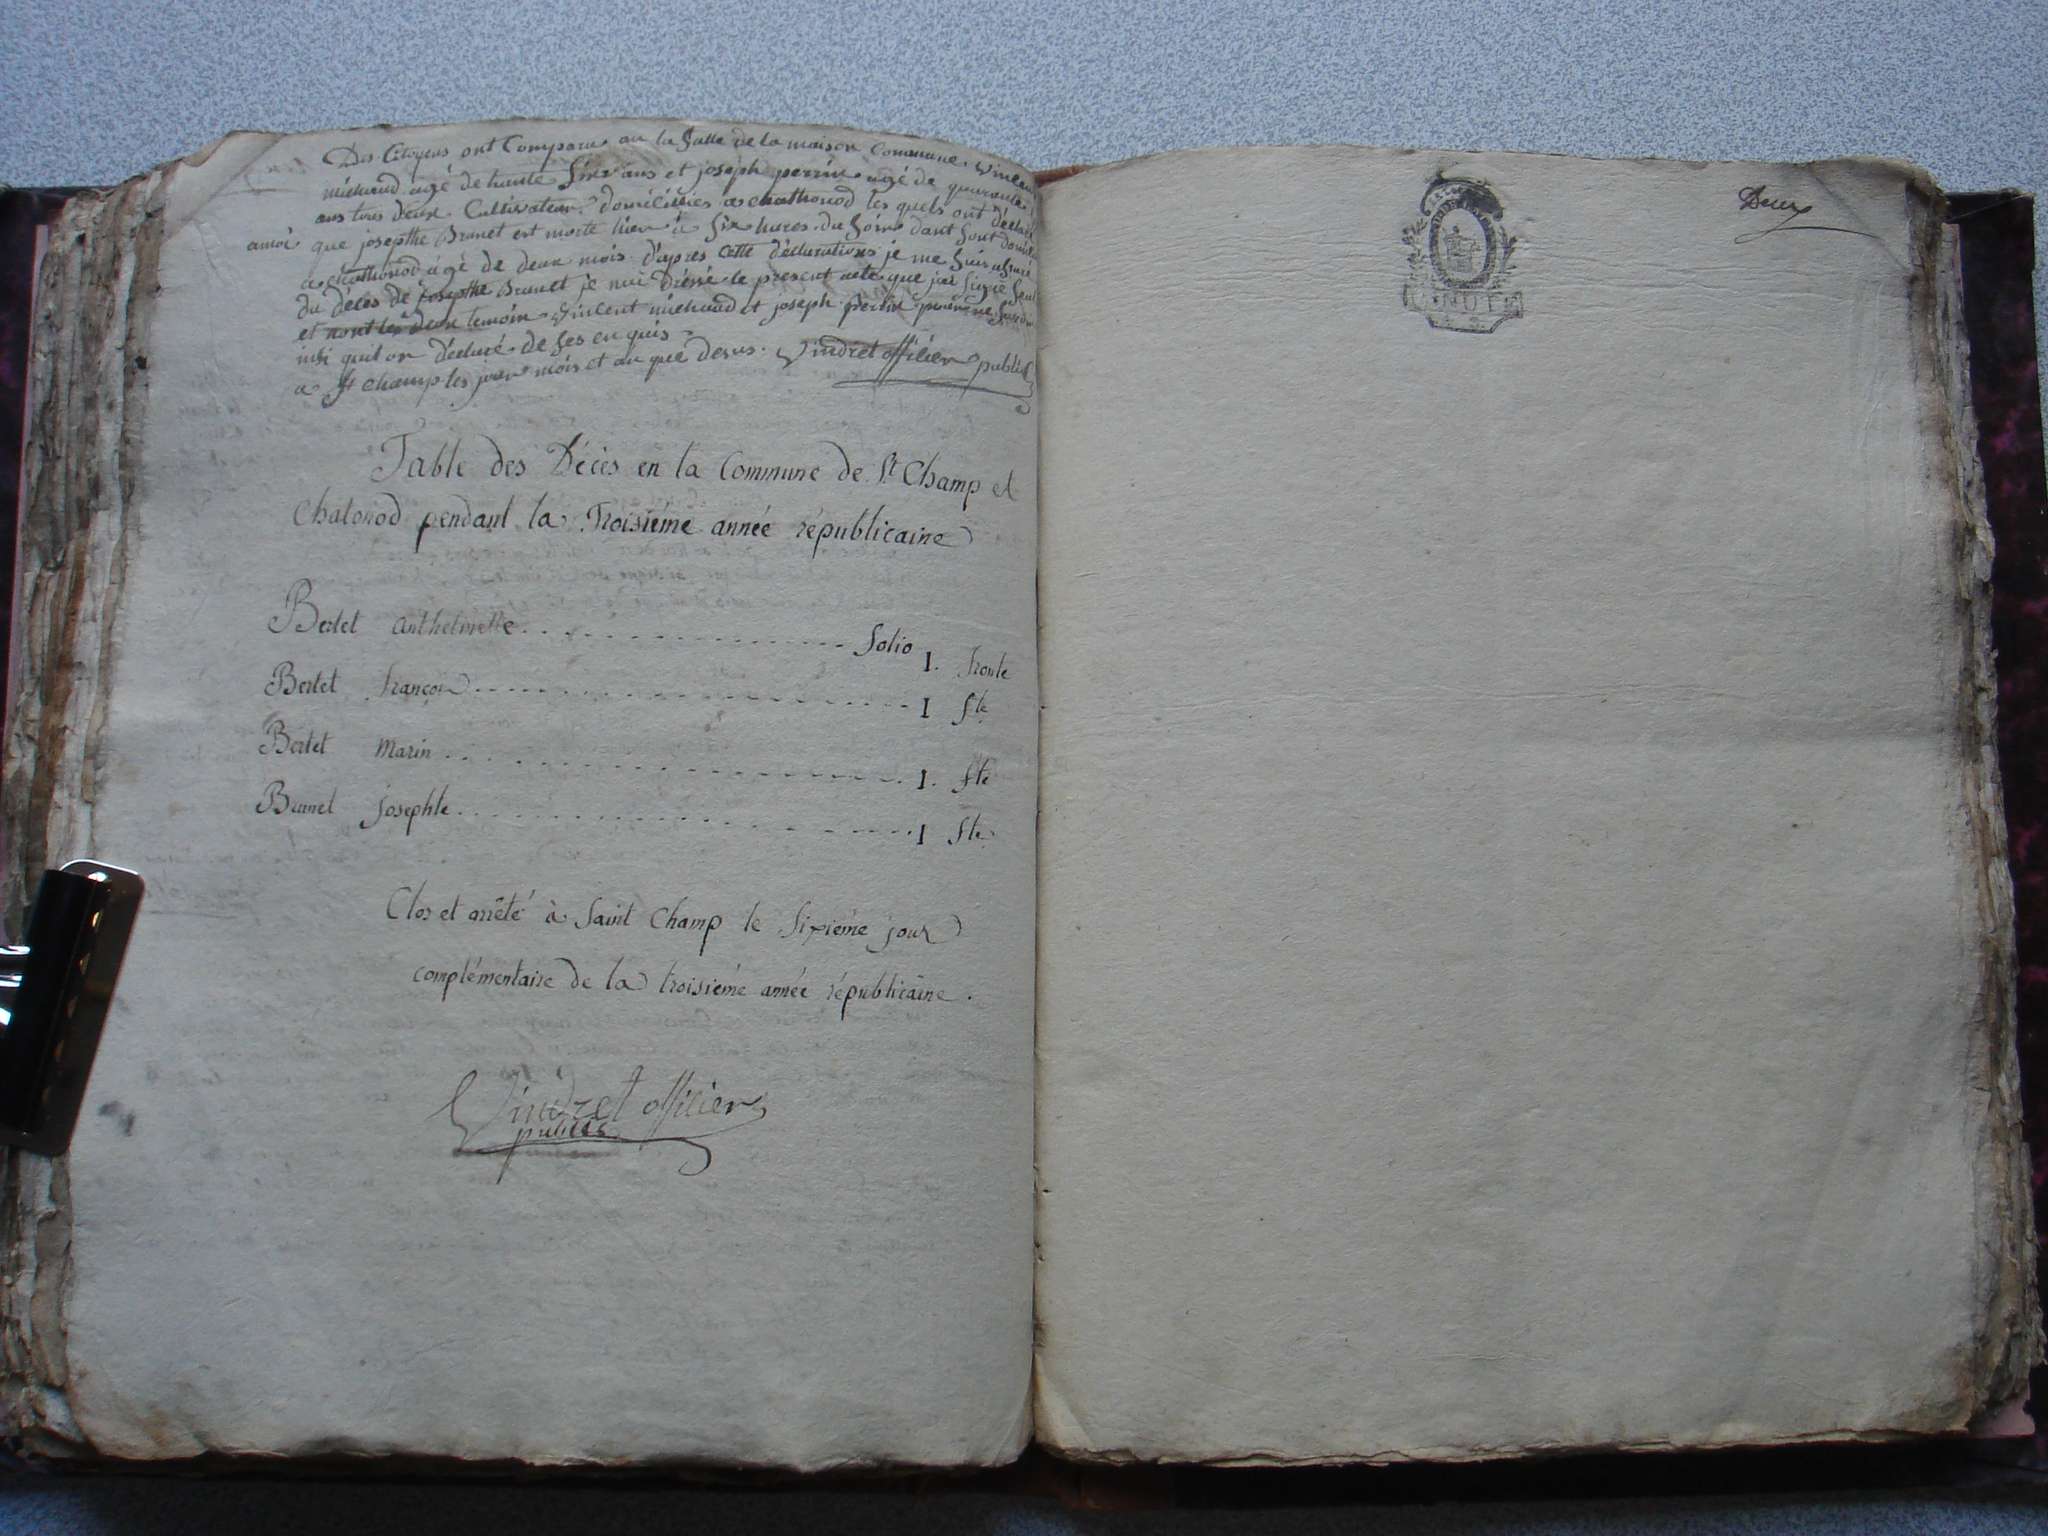 Des Citoyens ont Comparu an la Salle de la maison Commune. Vincent
michaud agé de trante Six ans et joseph perrin agé de quarante
ans tous deux Cultivateur domiciliés a chathonod les quels ont déclaré
amoi que josepthe Brunet est morte hier à Six hures du Soir dant Sont domicile
a chathonod agé de deux mois. d'apres cette déclarations je me Suis assuré
du déces de josepthe Brunet je nai dréssé le present acte que jai Signé Seul
et nont les deux temoin Vincent michaud et joseph perrin pour ne Savoir
insi quil on déclaré de ses enquis
a St champ les jour mois et an que desus. Vindret officier public
Table des Décès en la Commune de St Champ et
Chatonod pendant la Troisiéme année républicaine
Bertet anthelmette folio 1. fronte
Bertet françois 1 fte
Bertet Marin 1. fte
Brunet Josephte 1 fte
Clos et arrêté à Saint Champ le Sixiéme jour
complémentaire de la troisiéme année républicaine.
Vindret officier
public
Deux